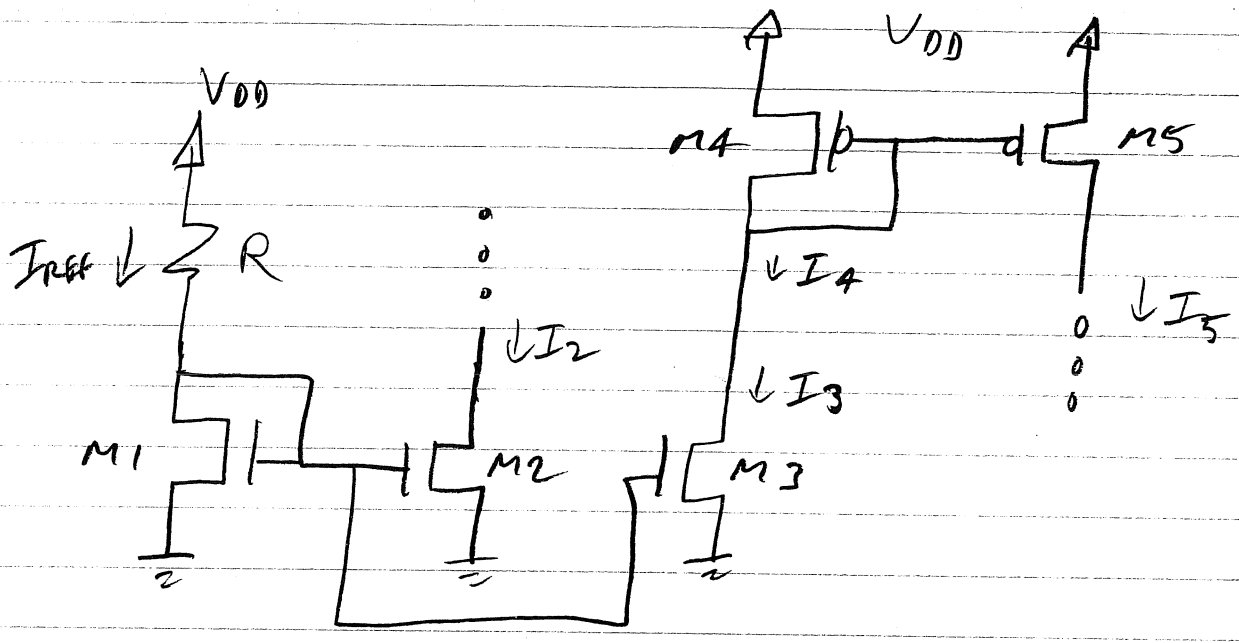 VDD
VDD
M4
M5
IREF
R
I4
I5
I2
I3
M1
M2
M3